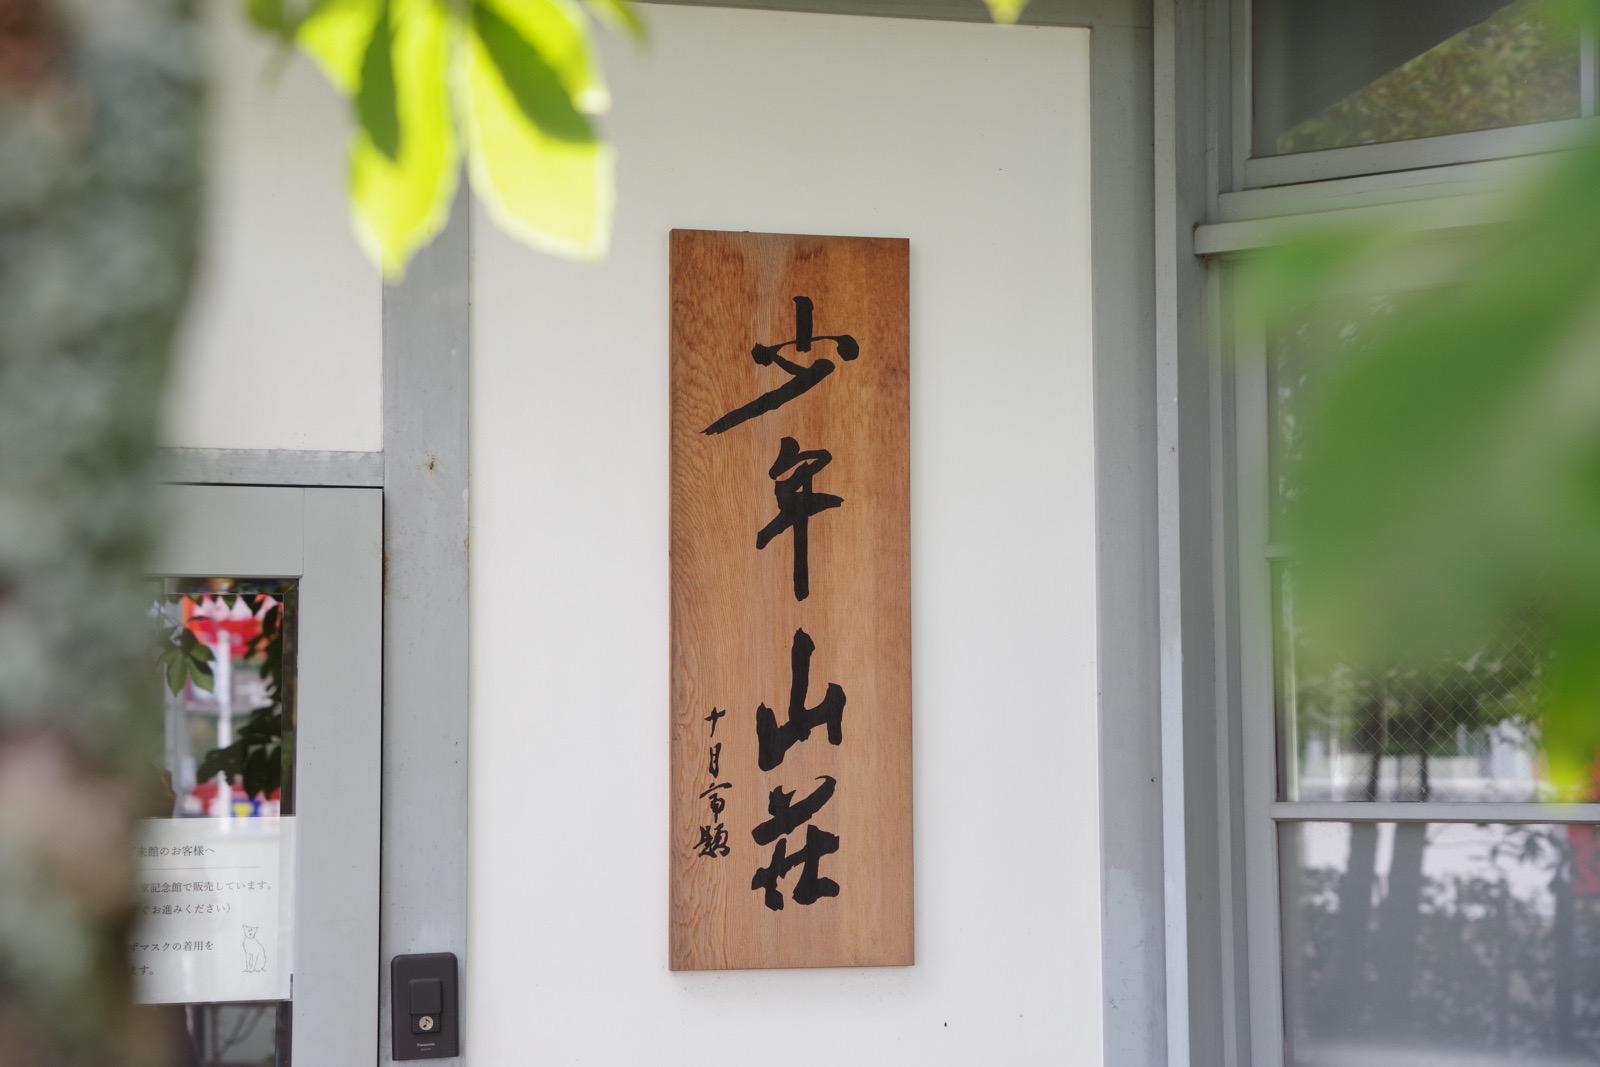 少年山荘
十月齋題
ご来館のお客様へ
家記念館で販売しています。
ぐお進みください）
ずマスクの着用を
ます。
Panasonic